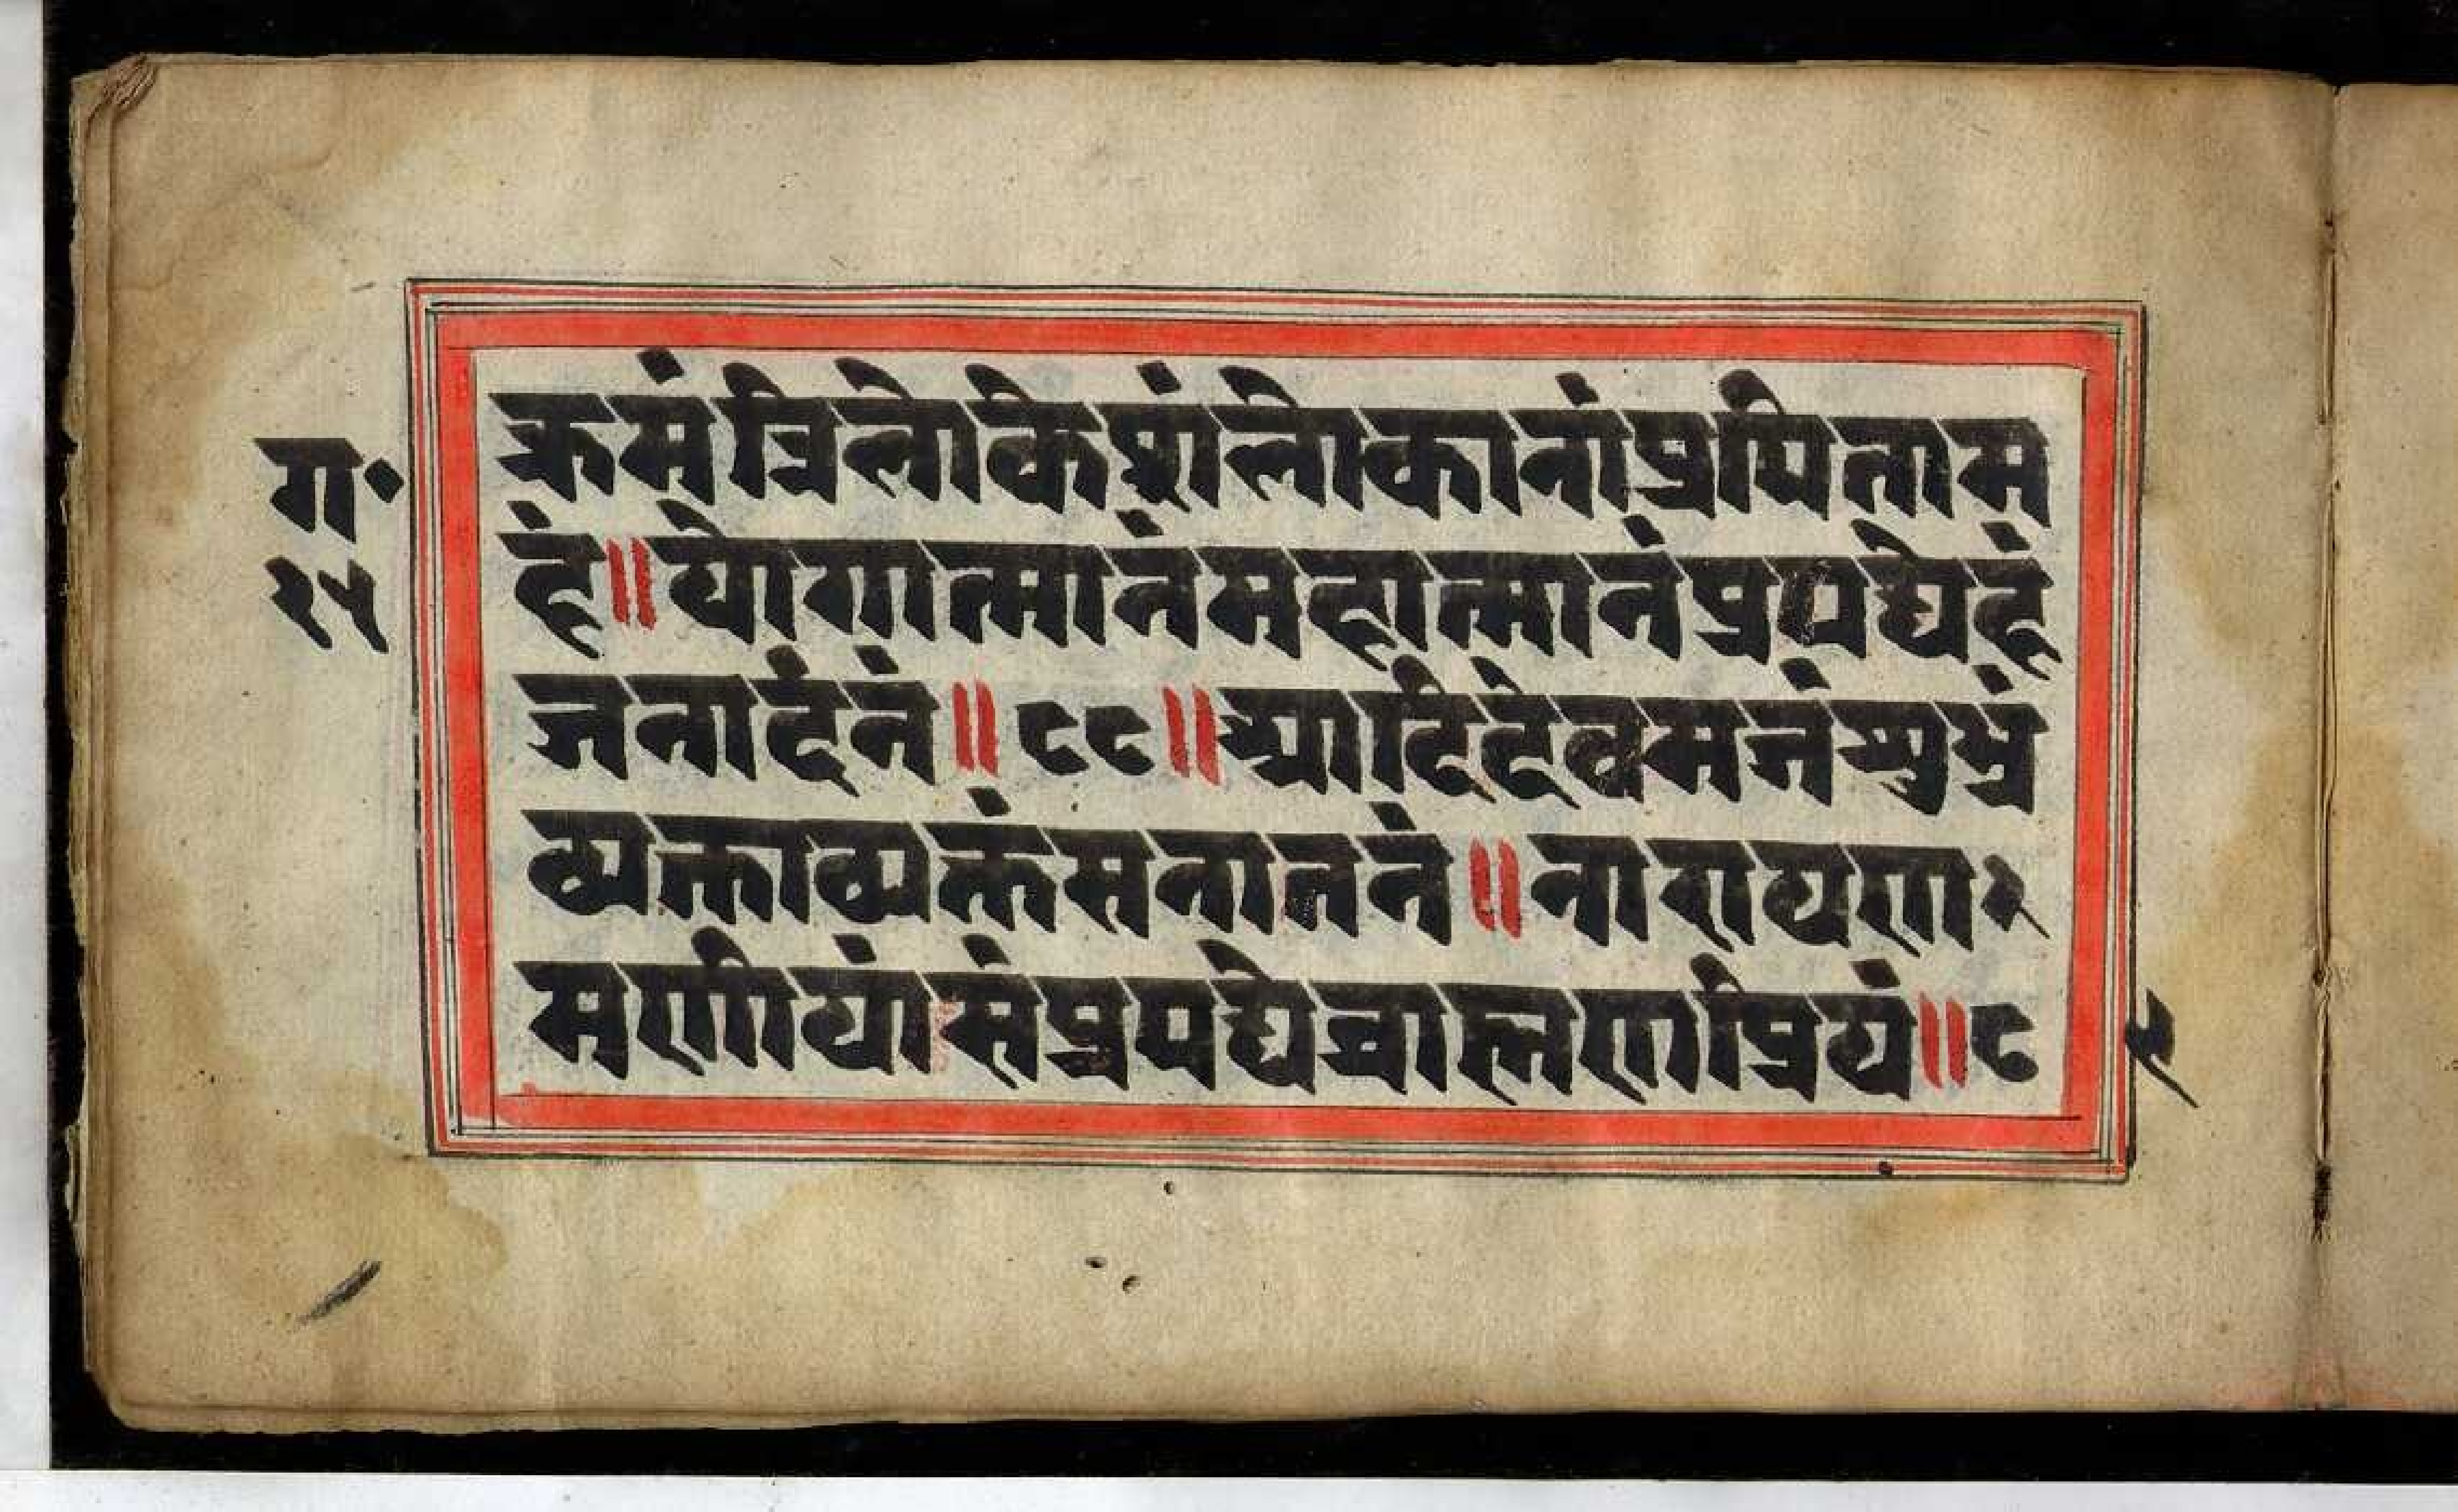 ग॰
२५
क्रमं त्रिलोकेशं लोकानां प्रपिताम
हं ॥ योगात्मानं महात्मानं प्रपद्येहं
जनार्दनं ॥ ८८ ॥ आदिदेवमजं शुभ्रं
व्यक्ताव्यक्तं सनातनं ॥ नारायणा२
मणीयांसं प्रपद्ये ब्राह्मणप्रियं ॥ ८